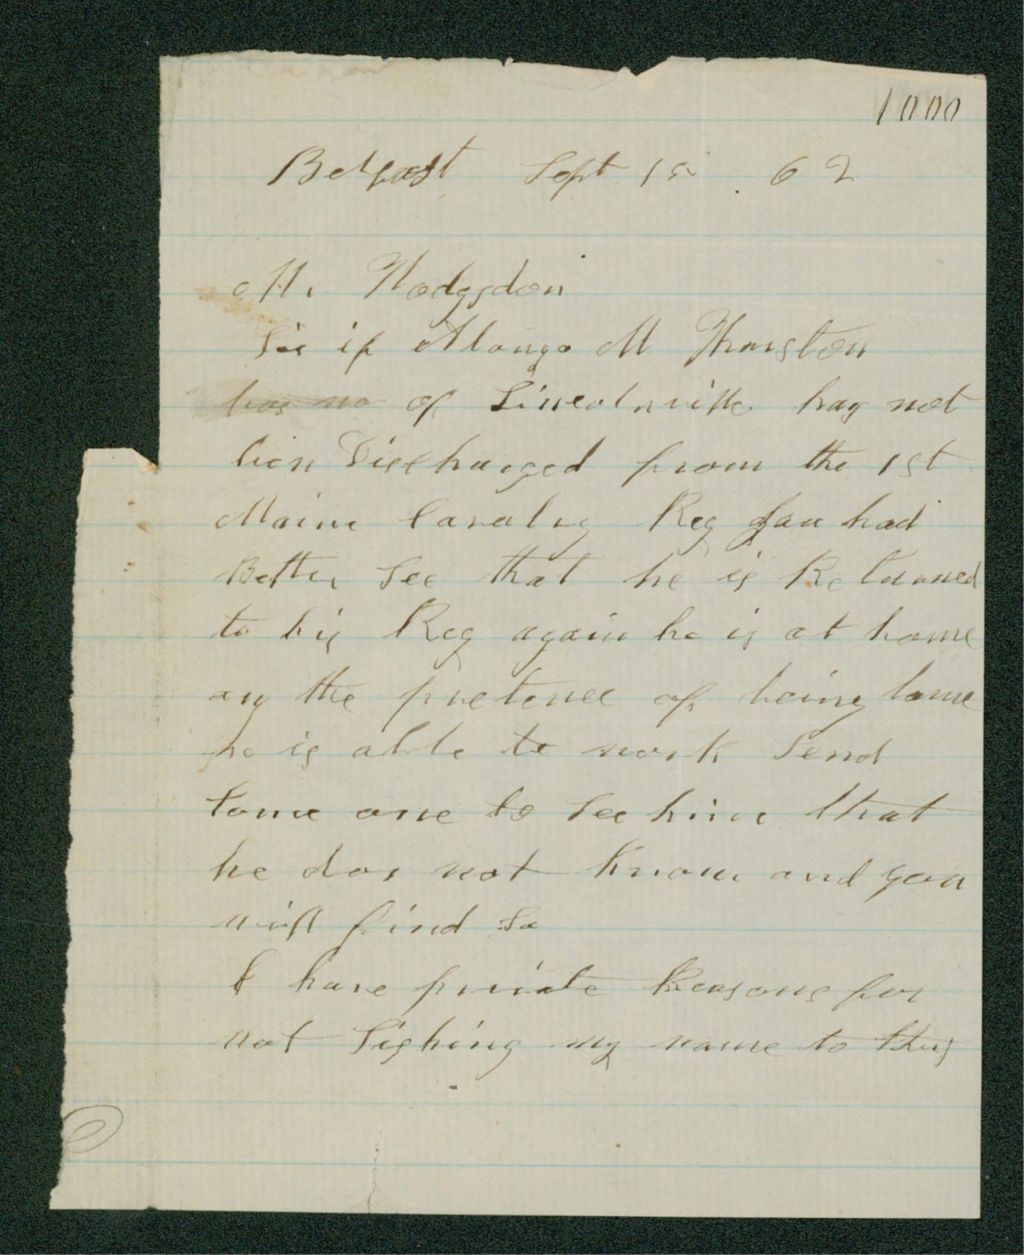 1000
Belfast Sept 15 . 62
Mr Hodgsdon
See if Alonzo M Thurston
has no of Lincolnville has not
bien Discharged from the 1st
Maine Cavalry Reg you had
Better See that he is Returned
to his Reg again he is at home
on the pretence of being lame
he is able to work Send
Some one to See him that
he dos not Know and you
will find So
I have private Reasons for
not Sighing my name to this